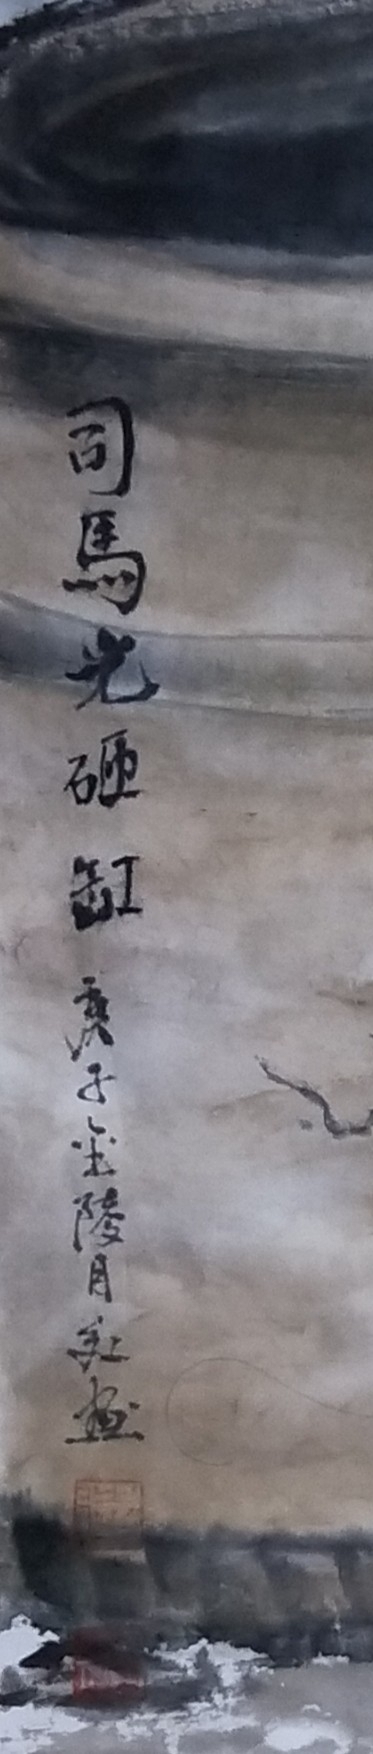 司馬光砸缸 庚子金陵月美画